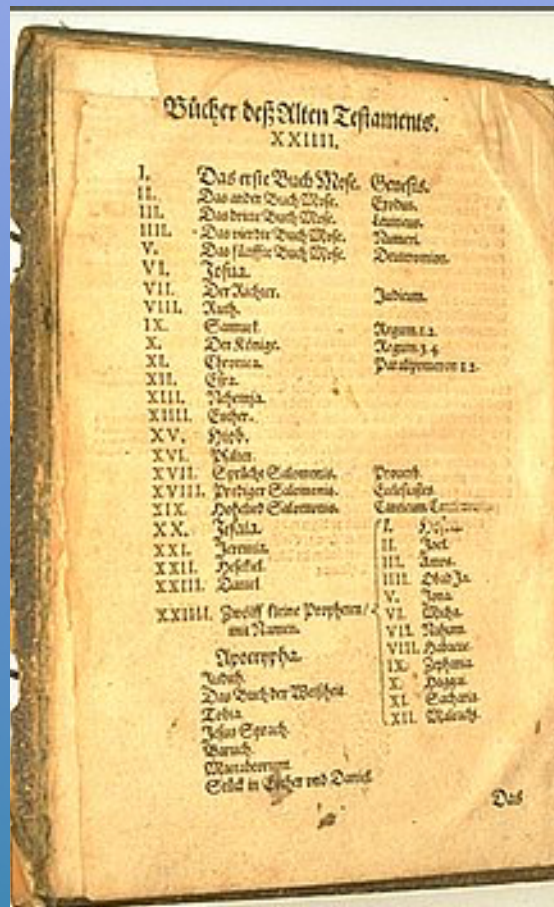 Bücher deß Alten Testaments.
XXIIII.
I. Das erste Buch Mose. Genesis.
II. Das ander Buch Mose. Exodus.
III. Das dritte Buch Mose. Leuiticus.
IIII. Das vierdte Buch Mose. Numeri.
V. Das fünffte Buch Mose.
VI. Josua.
VII. Der Richter. Judicum.
VIII. Ruth.
IX. Samuel. Regum 1.2.
X. Der Könige. Regum 3.4.
XI. Chronica. Paralipomenon 1.2.
XII. Esra.
XIII. Nehemja.
XIIII. Esther.
XV. Hiob.
XVI. Psalter.
XVII. Sprüche Salomonis. Prouerb.
XVIII. Prediger Salomonis. Ecclesiastes.
XIX. Hohelied Salomonis. Canticum
XX. Jesaia.
XXI. Jeremia.
XXII. Hesekiel.
XXIII. Daniel
XXIIII. Zwölff kleine Propheten/
mit Namen.
I. Hosea.
II. Joel.
III. Amos.
IIII. ObadJa.
V. Jona.
VI. Micha.
VII. Nahum.
VIII. Habacuc.
IX. Zephania.
X. Haggai.
XI. Sacharia.
XII. Maleachj.
Apocrypha.
Judith.
Das Buch der Weißheit.
Tobia.
Jesus Syrach.
Baruch.
Maccabeorum.
Stück in Esther vnd Daniel.
Das